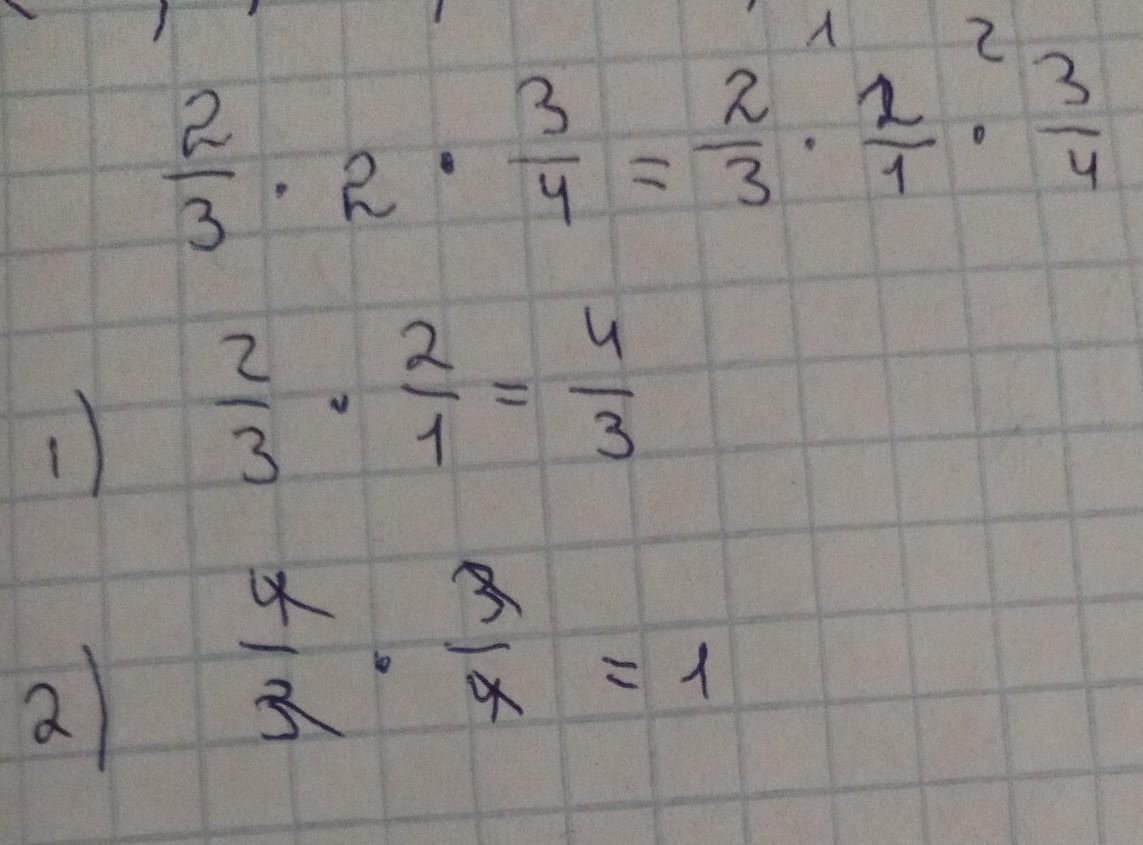 1 2
2/3 · 2 · 3/4 = 2/3 · 2/1 · 3/4
1) 2/3 · 2/1 = 4/3
2) 4/3 · 3/4 = 1